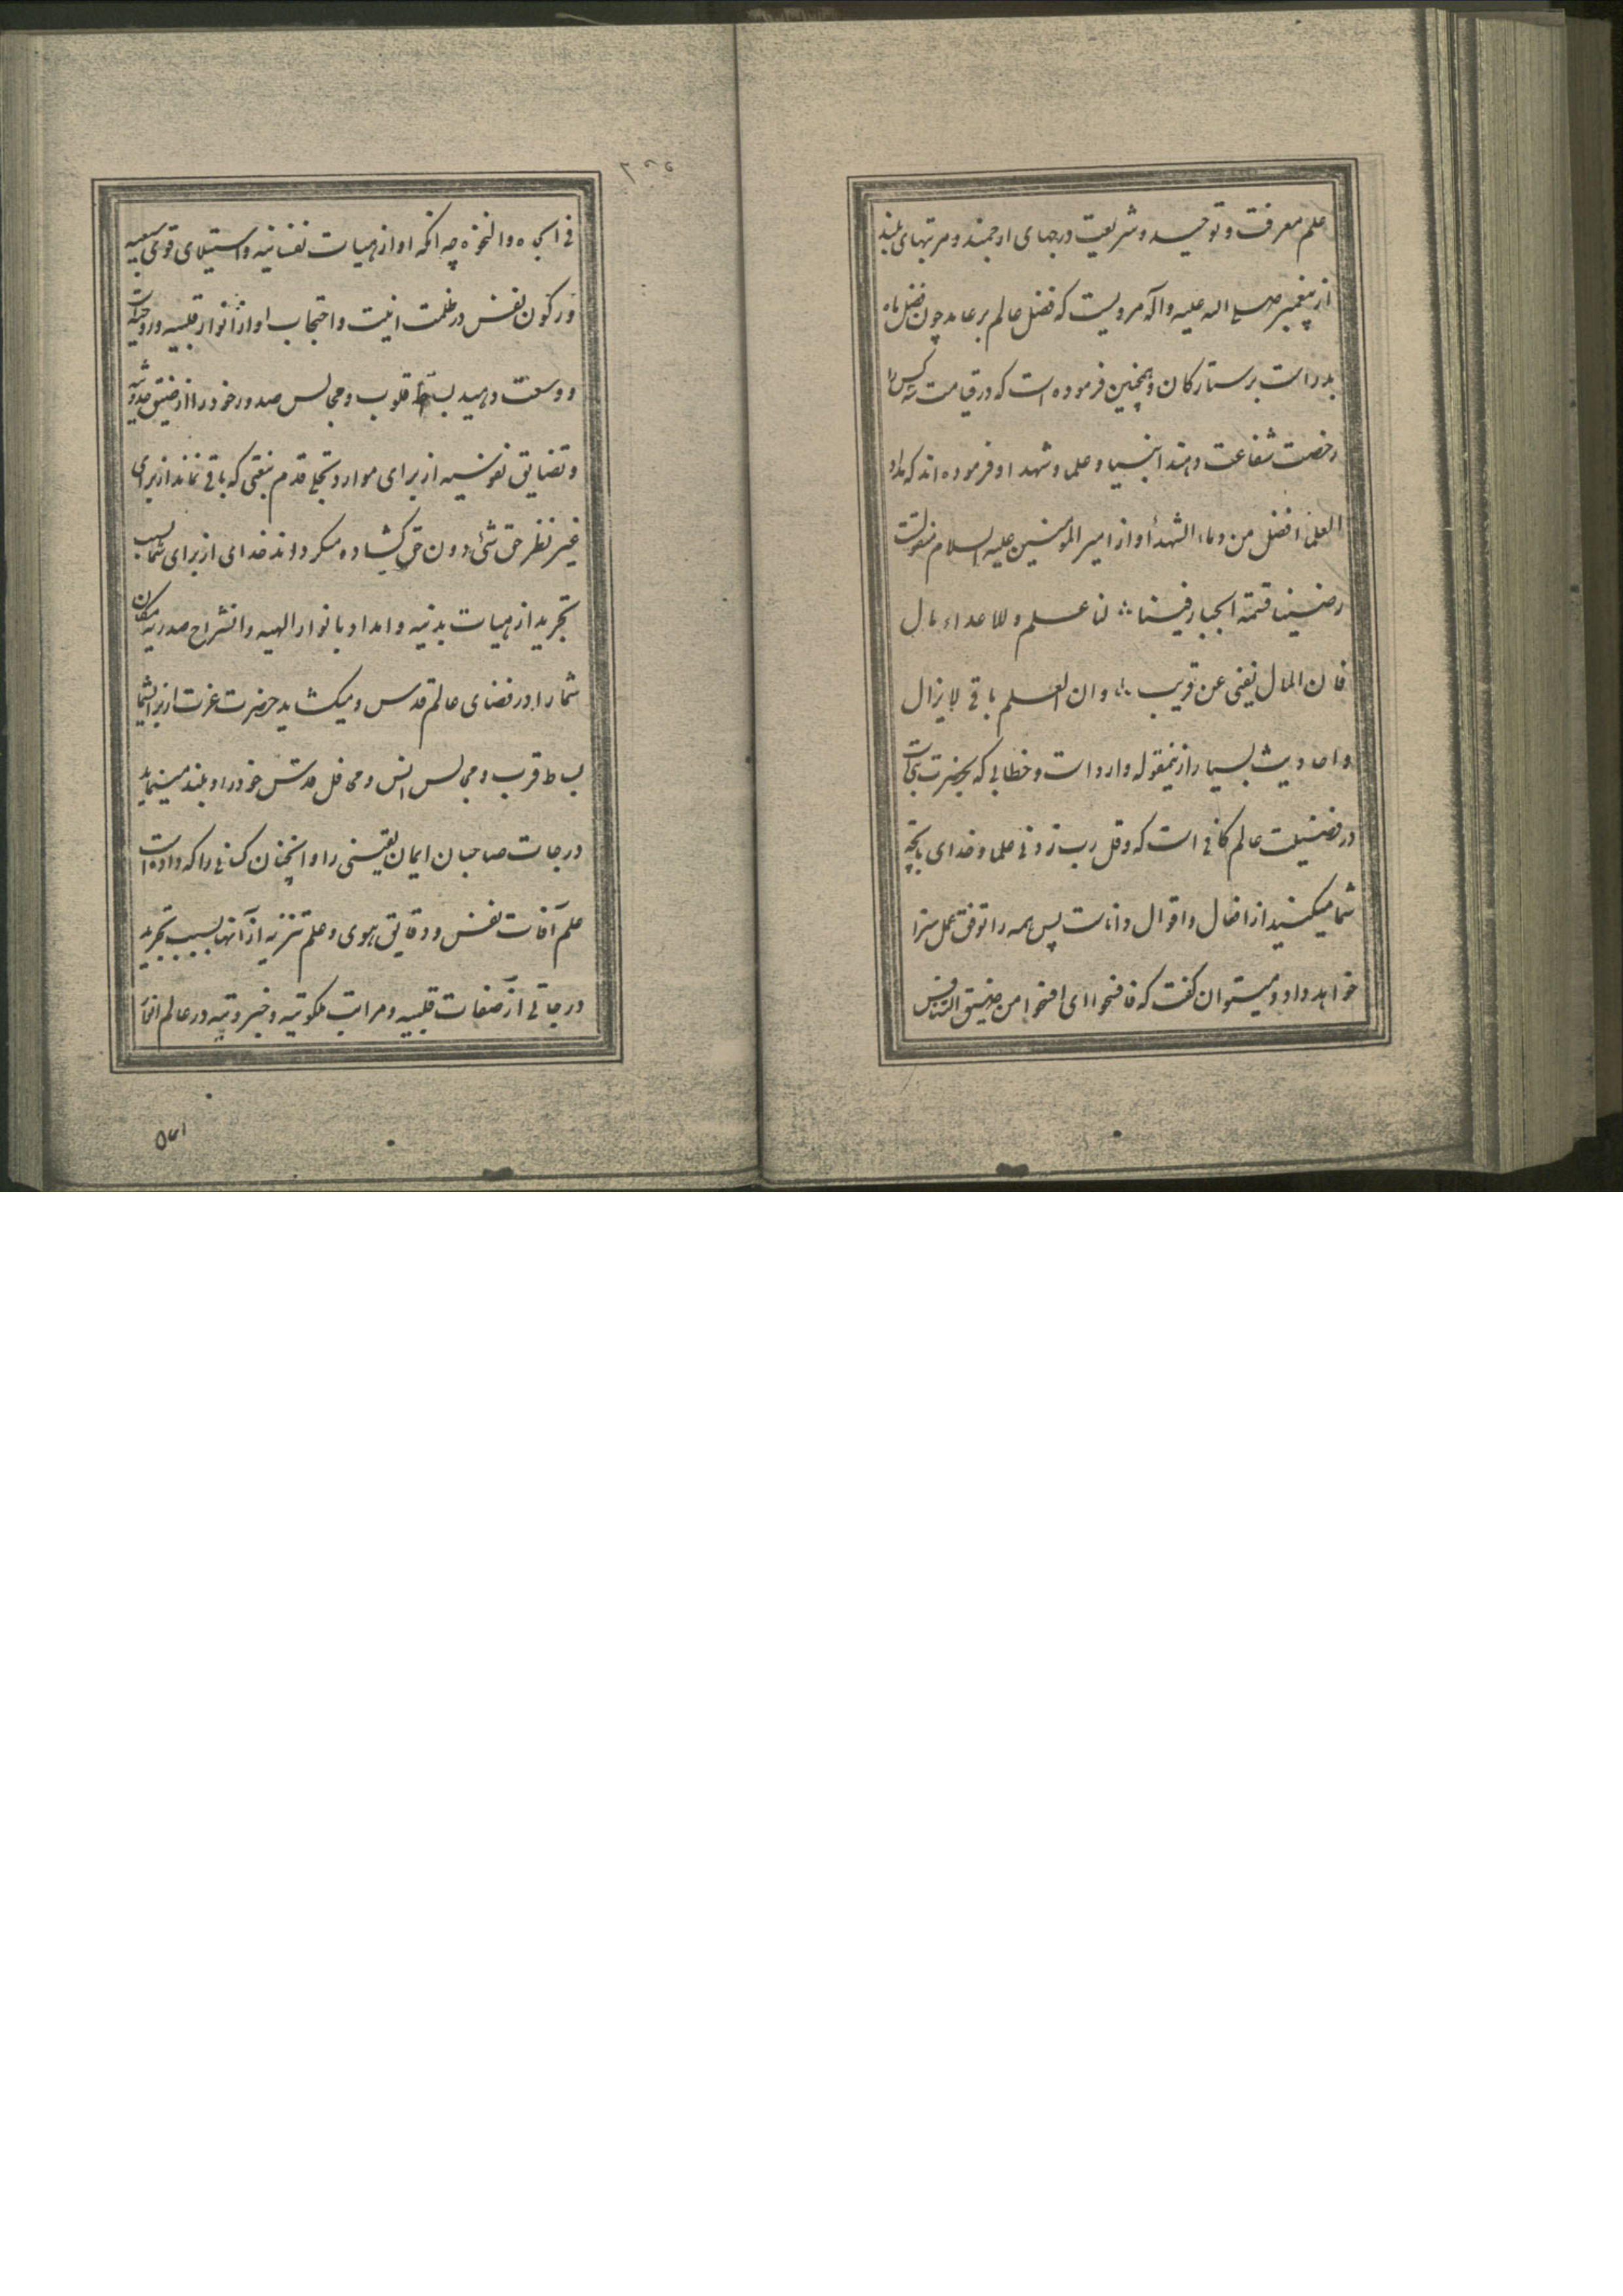 علم معرفت و توحید و شریعت درجهای ارجمند و مرتبهای بلند
از پیغمبر صلی اله علیه و آله مرویست که فضل عالم بر عابد چون فضل ماه
بدر است بر ستارکان و همچنین فرموده است که در قیامت سه کس را
رخصت شفاعت دهند انبیا و علما و شهدا و فرموده اند که مداد
العلما افضل من دماء الشهدأ و از امیر المومنین علیه السلام منقولست
رضینا قسمة الجبار فینا لنا علم و للاعداء مال
فان المال یفنی عن قریب و ان العلم باقی لایزال
و احادیث بسیار ازینمقوله وارد است و خطابی که بحضرت
در فضیلت عالم کافی است که و قل رب زدنی علما و خدای بانچه
شما میکنید از افعال و اقوال و نیات پس همه را توفق عمل سزا
خواهد داد و میتوان کفت که فافسحوا ای افسحوا من ضیق التنافس
فی الجاه و النخوة چه انکه او از هیات نفسانیه و استیلای قوی سبعیه
و رکون نفس در ظلمت انیت و احتجاب او از انوار قلبیه و روحیه
و وسعت دهید بساط قلوب و مجالس صدور خود را از ضیق
و تضایق نفوسیه از برای موارد تجلی قدم بنقی که باقی نماند از برای
غیر نظر حق شئ دون حق کشاده میکرداند خدای از برای شما بسبب
تجرید از هیات بدنیه و امداد بانوار الهیه و انشراح صدریه مکان
شما را در فضای عالم قدس و میکشاید حضرت عزت از برای شما
بساط قرب و مجالس انس و محافل قدس خود را و بلند مینماید
درجات صاحبان ایمان یقینی را و انچنان کسانی را که داده است
علم آفات نفس و دقایق هوی و علم تنزیه از آنها بسبب تجرید
درجاتی از صفات قلبیه و مراتب ملکوتیه و جبروتیه در عالم